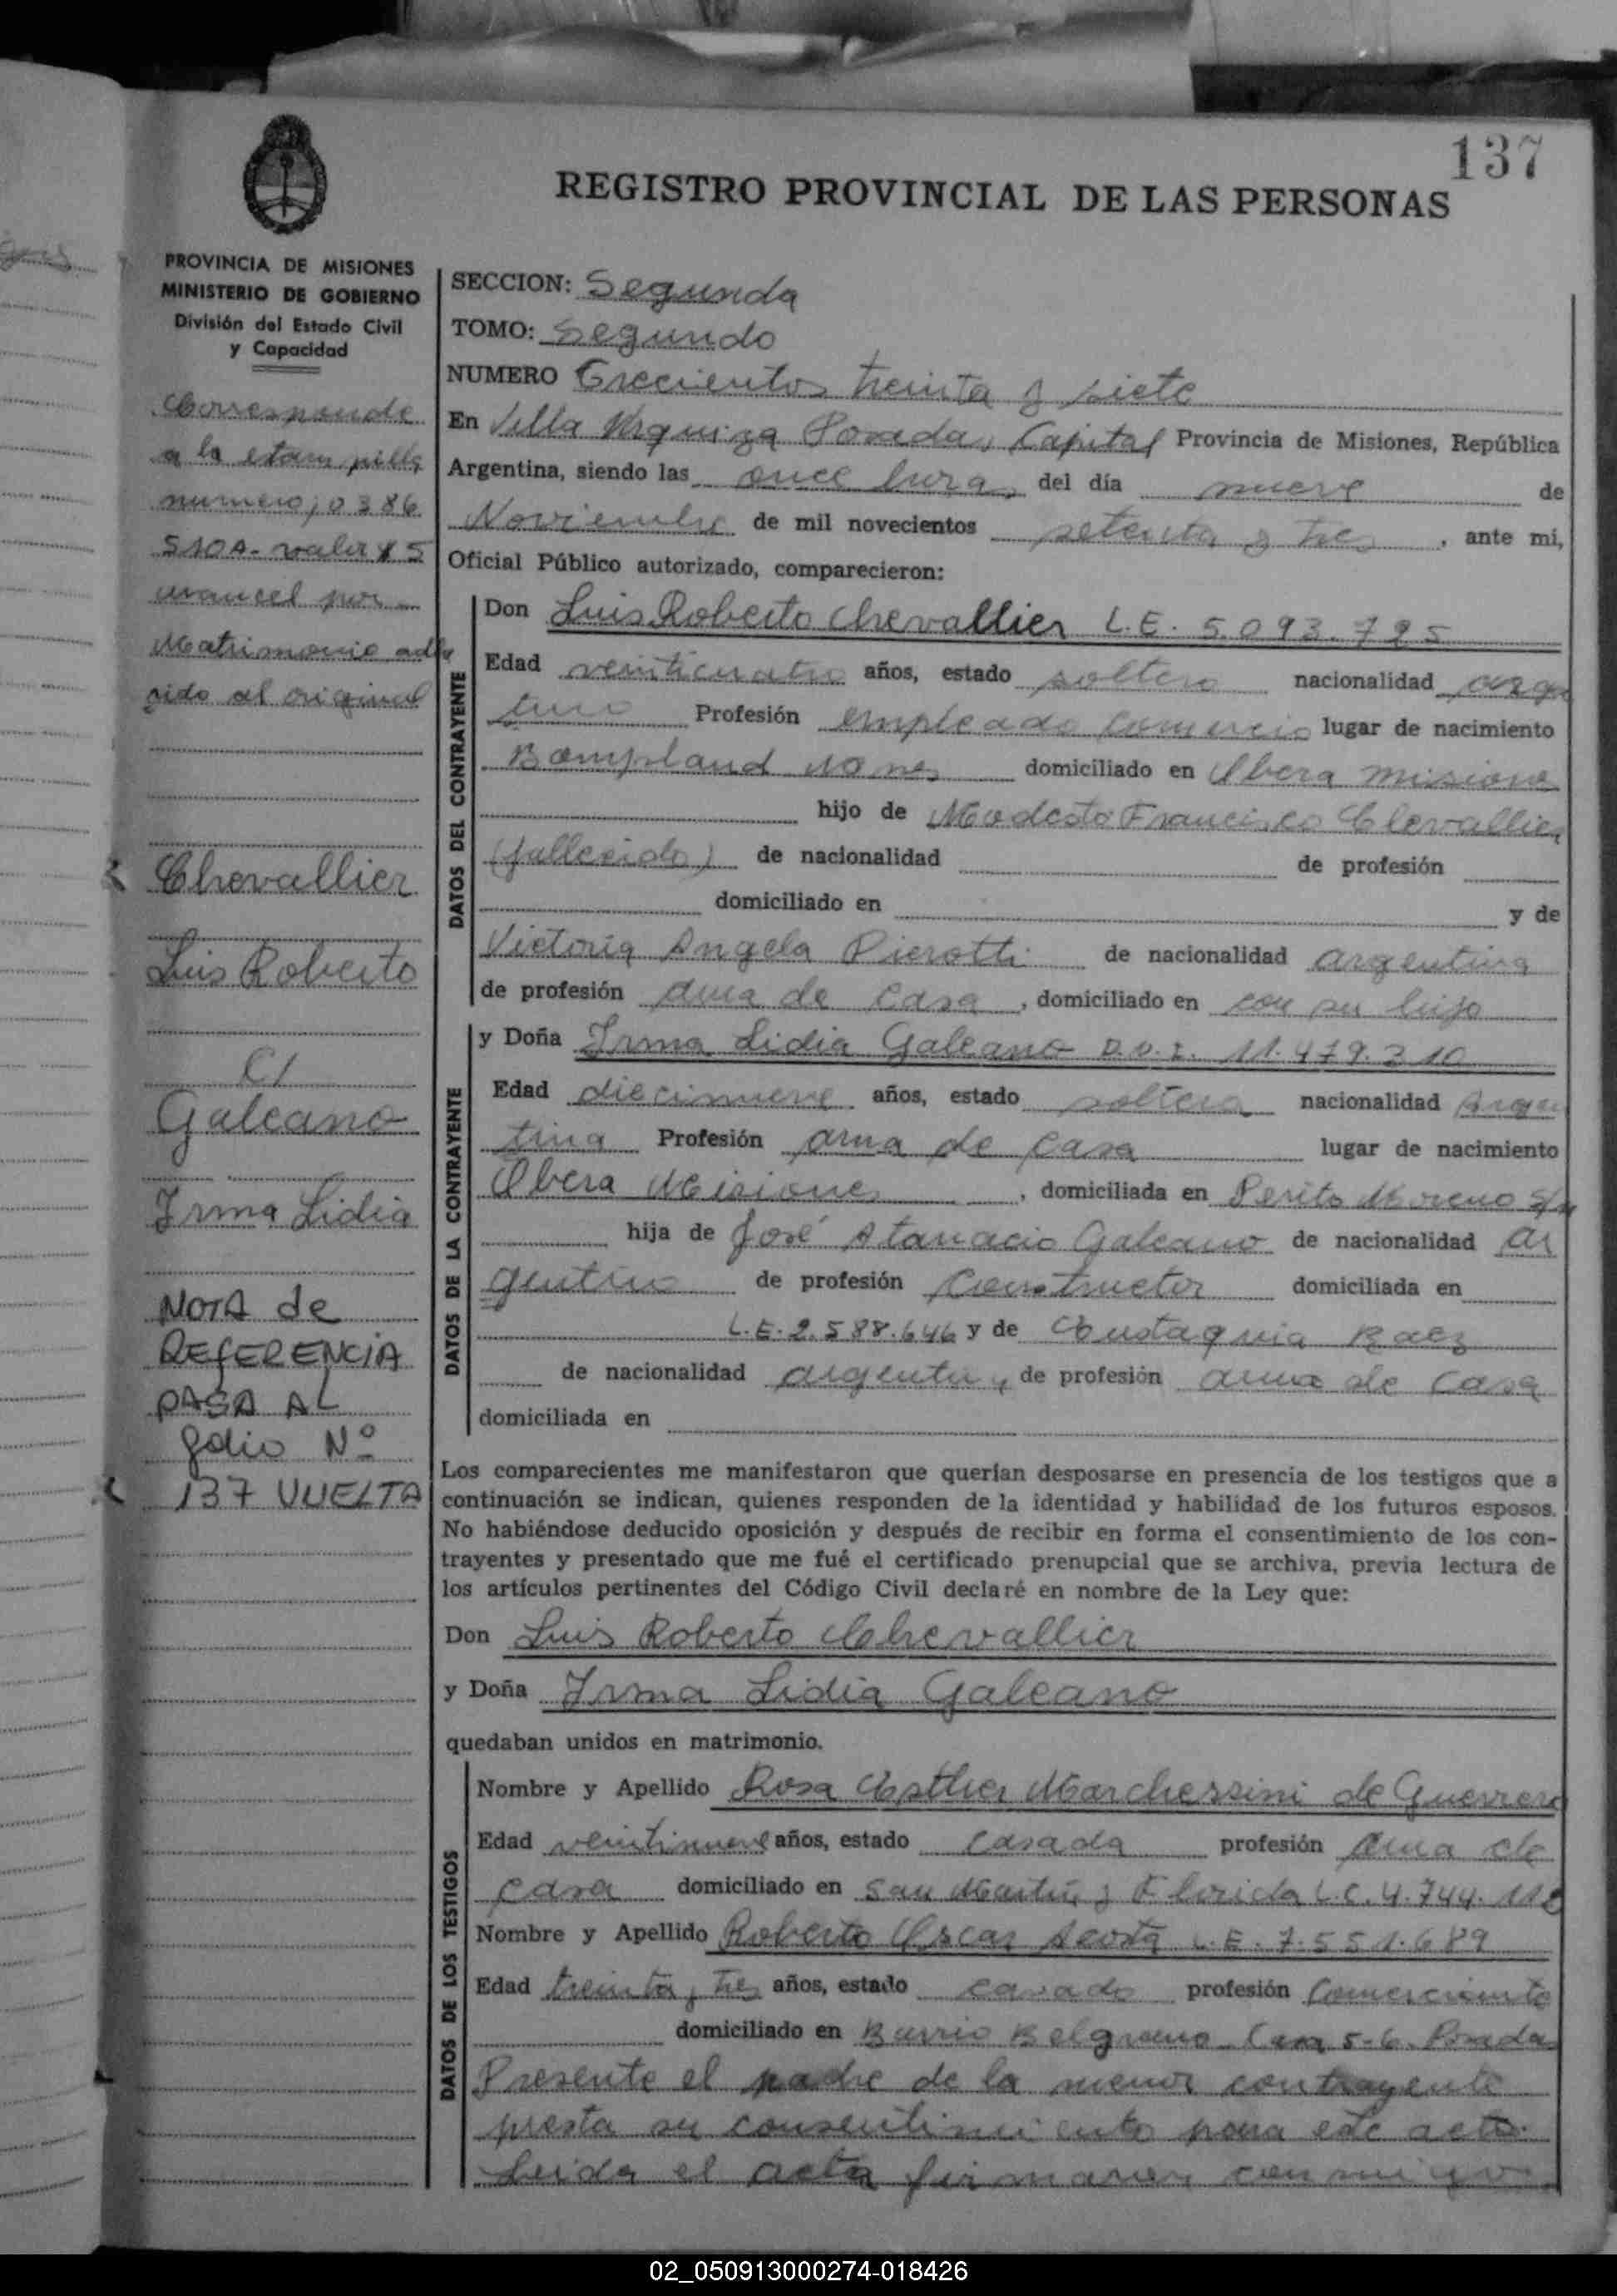 137
REGISTRO PROVINCIAL DE LAS PERSONAS
PROVINCIA DE MISIONES
MINISTERIO DE GOBIERNO
División del Estado Civil
y Capacidad
Corresponde
a la estampilla
numero, 0386
510A - valor $5
arancel por
Matrimonio adhe
rido al original
Chevallier
Luis Roberto
C/
Galeano
Irma Lidia
NOTA de
REFERENCIA
PASA AL
folio Nº
137 VUELTA
SECCION: Segunda
TOMO: Segundo
NUMERO Trecientos treinta y siete
En Villa Urquiza Posadas, Capital Provincia de Misiones, República
Argentina, siendo las once hora, del día nueve de
Noviembre de mil novecientos setenta y tres, ante mí,
Oficial Público autorizado, comparecieron:
DATOS DEL CONTRAYENTE
Don Luis Roberto Chevallier L.E. 5.093.725
Edad veinticuatro años, estado soltero nacionalidad argen
tino Profesión empleado comercio lugar de nacimiento
Bompland domiciliado en Obera Misiones
hijo de Modesto Francisco Chevallier
(fallecido) de nacionalidad de profesión
domiciliado en y de
Victoria Angela Pierotti de nacionalidad argentina
de profesión ama de casa, domiciliado en con su hijo
DATOS DE LA CONTRAYENTE
y Doña Irma Lidia Galeano D.N.I. 11.479.310
Edad diecinueve años, estado soltera nacionalidad Argen
tina Profesión ama de casa lugar de nacimiento
Obera Misiones, domiciliada en Perito Moreno S/N
hija de José Atanacio Galeano de nacionalidad ar
gentino de profesión Constructor domiciliada en
L.E. 2.588.646 y de Eustaquia Baez
de nacionalidad argentina, de profesión ama de casa
domiciliada en
Los comparecientes me manifestaron que querían desposarse en presencia de los testigos que a
continuación se indican, quienes responden de la identidad y habilidad de los futuros esposos.
No habiéndose deducido oposición y después de recibir en forma el consentimiento de los con-
trayentes y presentado que me fué el certificado prenupcial que se archiva, previa lectura de
los artículos pertinentes del Código Civil declaré en nombre de la Ley que:
Don Luis Roberto Chevallier
y Doña Irma Lidia Galeano
quedaban unidos en matrimonio.
DATOS DE LOS TESTIGOS
Nombre y Apellido Rosa Esther Marchessini de Guerrero
Edad veintinueve años, estado casada profesión ama de
casa domiciliado en San Martín y Florida L.C. 4.744.118
Nombre y Apellido Roberto Oscar Acosta L.E. 7.551.689
Edad treinta y tres años, estado casado profesión Comerciante
domiciliado en Barrio Belgrano Casa 5-6. Posadas
Presente el padre de la menor contrayente
presta su consentimiento para este acto.
Leida el acta firmaron conmigo
02_050913000274-018426